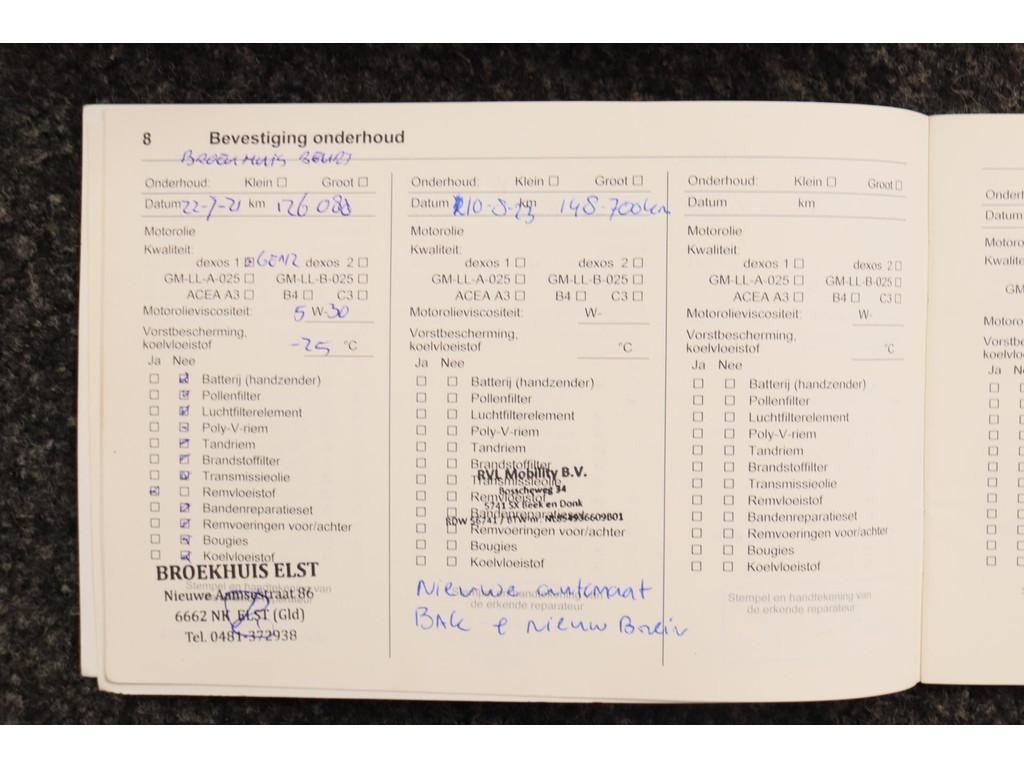 8 Bevestiging onderhoud
BROEKHUIS BEURT
Onderhoud: Klein ☐ Groot ☐
Datum 22-7-21 km 126 088
Motorolie
Kwaliteit:
dexos 1 ☒ GEN2 dexos 2 ☐
GM-LL-A-025 ☐ GM-LL-B-025 ☐
ACEA A3 ☐ B4 ☐ C3 ☐
Motorolieviscositeit: 5 W-30
Vorstbescherming,
koelvloeistof -25 °C
Ja Nee
Batterij (handzender)
Pollenfilter
Luchtfilterelement
Poly-V-riem
Tandriem
Brandstoffilter
Transmissieolie
Remvloeistof
Bandenreparatieset
Remvoeringen voor/achter
Bougies
Koelvloeistof
BROEKHUIS ELST
Stempel en handtekening van
Nieuwe Aamsestraat 86
6662 NK ELST (Gld)
Tel. 0481-372938
Onderhoud: Klein ☐ Groot ☐
Datum 10-8-23 km 148-700km
Motorolie
Kwaliteit:
dexos 1 ☐ dexos 2 ☐
GM-LL-A-025 ☐ GM-LL-B-025 ☐
ACEA A3 ☐ B4 ☐ C3 ☐
Motorolieviscositeit: W-
Vorstbescherming,
koelvloeistof °C
Ja Nee
Batterij (handzender)
Pollenfilter
Luchtfilterelement
Poly-V-riem
Tandriem
Brandstoffilter
RVL Mobility B.V.
Transmissieolie
Bosscheweg 34
Remvloeistof
5741 SX Beek en Donk
Bandenreparatieset
RDW 56741 / BTW nr. NL854936609B01
Remvoeringen voor/achter
Bougies
Koelvloeistof
Nieuwe automaat
de erkende reparateur
BAK nieuw
Onderhoud: Klein ☐ Groot ☐
Datum km
Motorolie
Kwaliteit:
dexos 1 ☐ dexos 2 ☐
GM-LL-A-025 ☐ GM-LL-B-025 ☐
ACEA A3 ☐ B4 ☐ C3 ☐
Motorolieviscositeit: W-
Vorstbescherming,
koelvloeistof °C
Ja Nee
Batterij (handzender)
Pollenfilter
Luchtfilterelement
Poly-V-riem
Tandriem
Brandstoffilter
Transmissieolie
Remvloeistof
Bandenreparatieset
Remvoeringen voor/achter
Bougies
Koelvloeistof
Stempel en handtekening van
de erkende reparateur
Datum
Ja